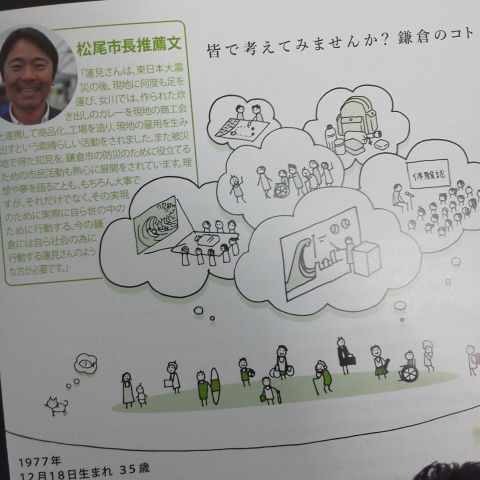 松尾市長推薦文
「蓮見さんは、東日本大震
災の後、現地に何度も足を
運び、女川では、作られた炊
き出しのカレーを現地の商工会
と連携して商品化、工場を造り、現地の雇用を生み
出すという素晴らしい活動をされました。また被災
地で得た知見を、鎌倉市の防災のために役立てる
ための市民活動も熱心に展開をされています。理
想や夢を語ることも、もちろん大事で
すが、それだけでなく、その実現
のために実際に自ら世の中の
ために行動する。今の鎌
倉には自ら社会の為に
行動する蓮見さんのよう
な方が必要です。」
皆で考えてみませんか?鎌倉のコト
体験談
1977年
12月18日生まれ 35歳